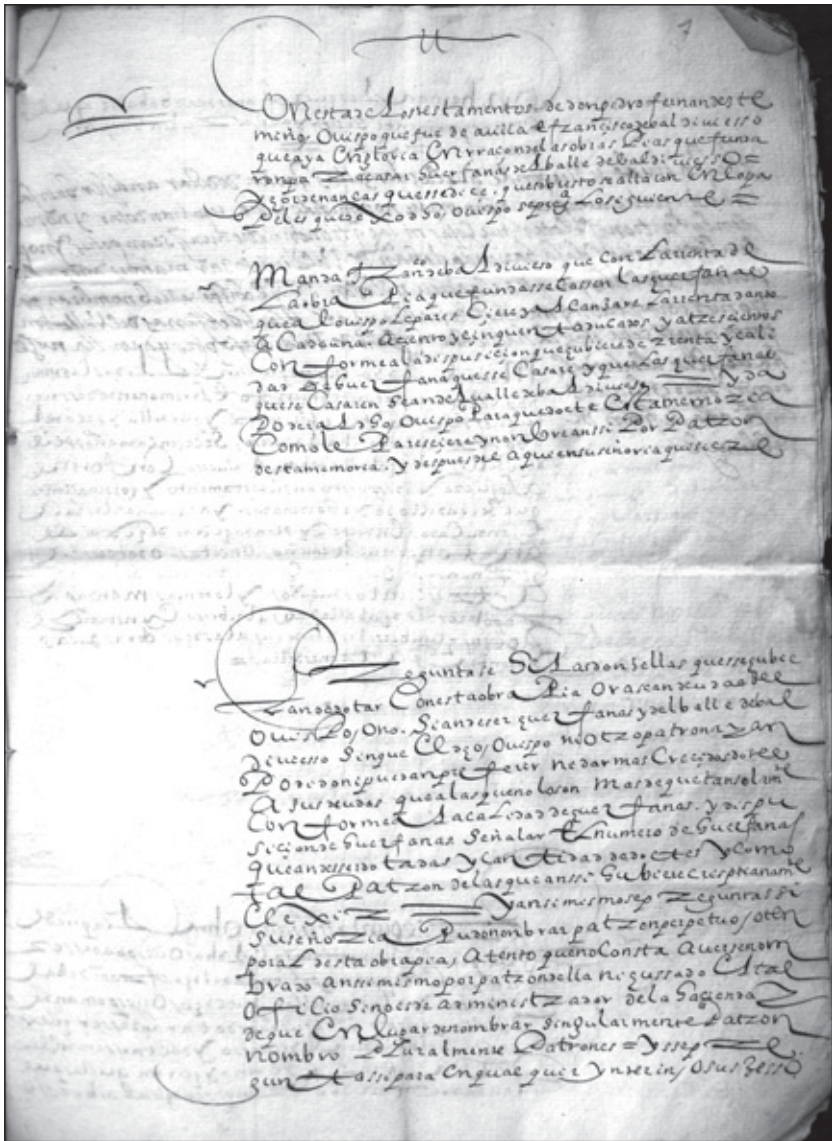 7
En esta de los testamentos de don pedro fernandez te
miño, Ovispo que fue de avilla e francisco de baldiviesso
que aya en gloria en rraçon de las obras pias que funda
ron para casar guerfanas del balle de baldiviesso =
y hordenanças que
del qual dho ovispo los siguiente =
Manda fran.co de baldivieso que con la rrenta de
la obra pia que fundasse cassen las guerfanas
que al ovispo le paresciere y alcanzare la rrenta dando
a cada una a ciento y cinquenta ducados y a trescientos
conforme a la dispusicion que hubiere de rrenta y cali
dad de guerfana que se casare y que las guerfanas
que se casaren sean del valle de baldivieso = y da
poder al dho ovispo para que dote esta memoria
como le paresciere y nonbre anssi por patron
desta memoria y despues del a quien su señoria quisiere
Preguntase si las donzellas que se hubie
ran de dotar con esta obra pia ora sean deudas del
ovispo o no. sean de ser guerfanas y del balle de bal
diviesso sin que el dho ovispo ni otro patron ayan
podido ni puedan preferir ni dar mas crecida dote
a sus deudas que a las que no lo son mas de que tan solam.te
conforme a la calidad de guerfanas y dispu
sicion de guerfanas señalar el numero de guerfanas
que an de ser dotadas y cantidad de dotes y como
tal patron de las que anssi hubiere
= y ansimismo se pregunta si
su señoria pudo nonbrar patron perpetuo o ten
poral desta obra pia, atento que no consta averse nom
brado ansimismo por patron della ni ussado el tal
oficio sino es de administrador de la hacienda
de que en lugar de nombrar singularmente patron
nombro pluralmente patrones = y sse pre
gunta ssi para en qualquier